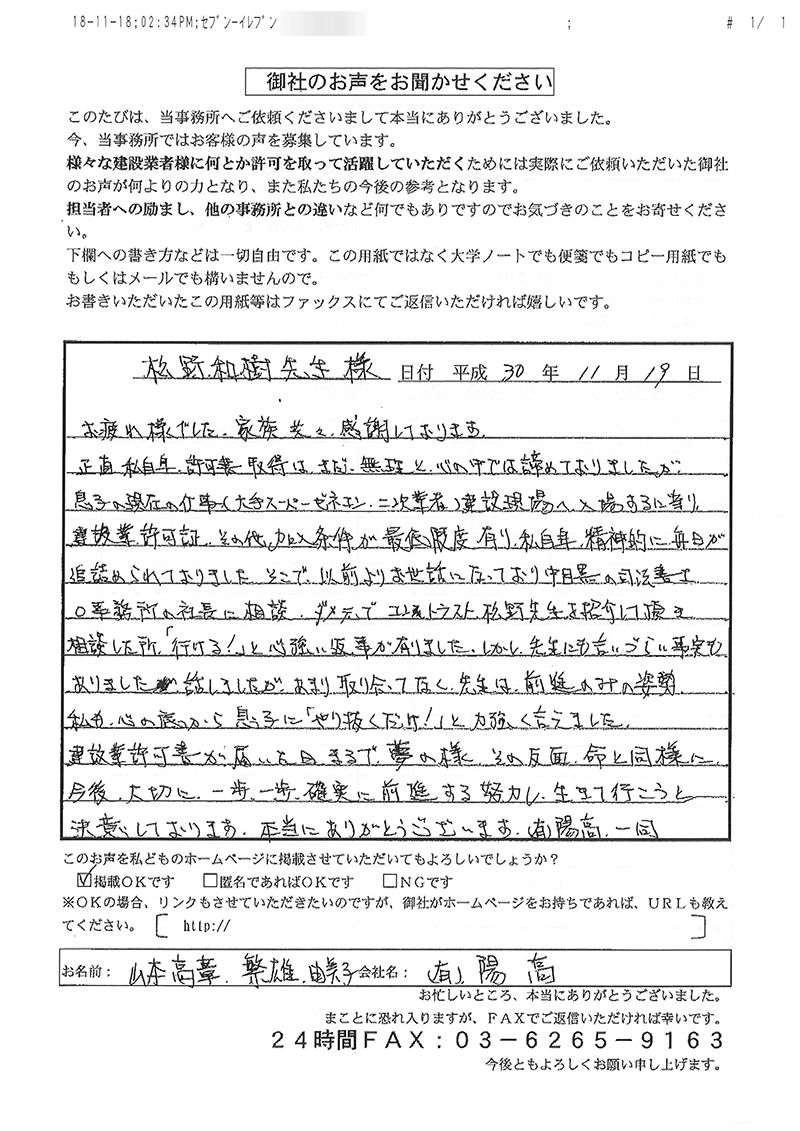 18-11-18;02:34PM;セブン-イレブン ; # 1/ 1
御社のお声をお聞かせください
このたびは、当事務所へご依頼くださいまして本当にありがとうございました。
今、当事務所ではお客様の声を募集しています。
様々な建設業者様に何とか許可を取って活躍していただくためには実際にご依頼いただいた御社
のお声が何よりの力となり、また私たちの今後の参考となります。
担当者への励まし、他の事務所との違いなど何でもありですのでお気づきのことをお寄せくださ
い。
下欄への書き方などは一切自由です。この用紙ではなく大学ノートでも便箋でもコピー用紙でも
もしくはメールでも構いませんので。
お書きいただいたこの用紙等はファックスにてご返信いただければ嬉しいです。
松野和樹先生様 日付 平成 30 年 11 月 19 日
お疲れ様でした。家族共々、感謝しております。
正直私自身、許可業取得は、まだ、無理と、心の中では諦めておりましたが、
息子の現在の仕事(大手スーパーゼネコン、二次業者)建設現場へ、入場するに当り、
建設業許可証、その他、加入条件が最低限度有り、私自身、精神的に毎日が
追詰められておりました。そこで、以前よりお世話になっており中目黒の司法書士
O事務所の社長に相談、ダメ元で トラスト松野先生を紹介して頂き
相談した所、「行ける!」と心強い返事が有りました。しかし、先生にも言いづらい事実も
ありました 話しましたが、あまり取り合ってなく、先生は、前進のみの姿勢
私も、心の底から息子に「やり抜くだけ!」と力強く言えました。
建設業許可書が届いた日まるで夢の様、その反面、命と同様に
今後、大切に、一歩、一歩、確実に前進する努力し、生きて行こうと
決意しております。本当にありがとうございます。(有)陽高、一同
このお声を私どものホームページに掲載させていただいてもよろしいでしょうか?
☑掲載OKです □匿名であればOKです □NGです
※OKの場合、リンクもさせていただきたいのですが、御社がホームページをお持ちであれば、URLも教え
てください。[ http:// ]
お名前: 山本高 、繁雄、由美子 会社名: (有)陽高
お忙しいところ、本当にありがとうございました。
まことに恐れ入りますが、FAXでご返信いただければ幸いです。
24時間FAX:03-6265-9163
今後ともよろしくお願い申し上げます。